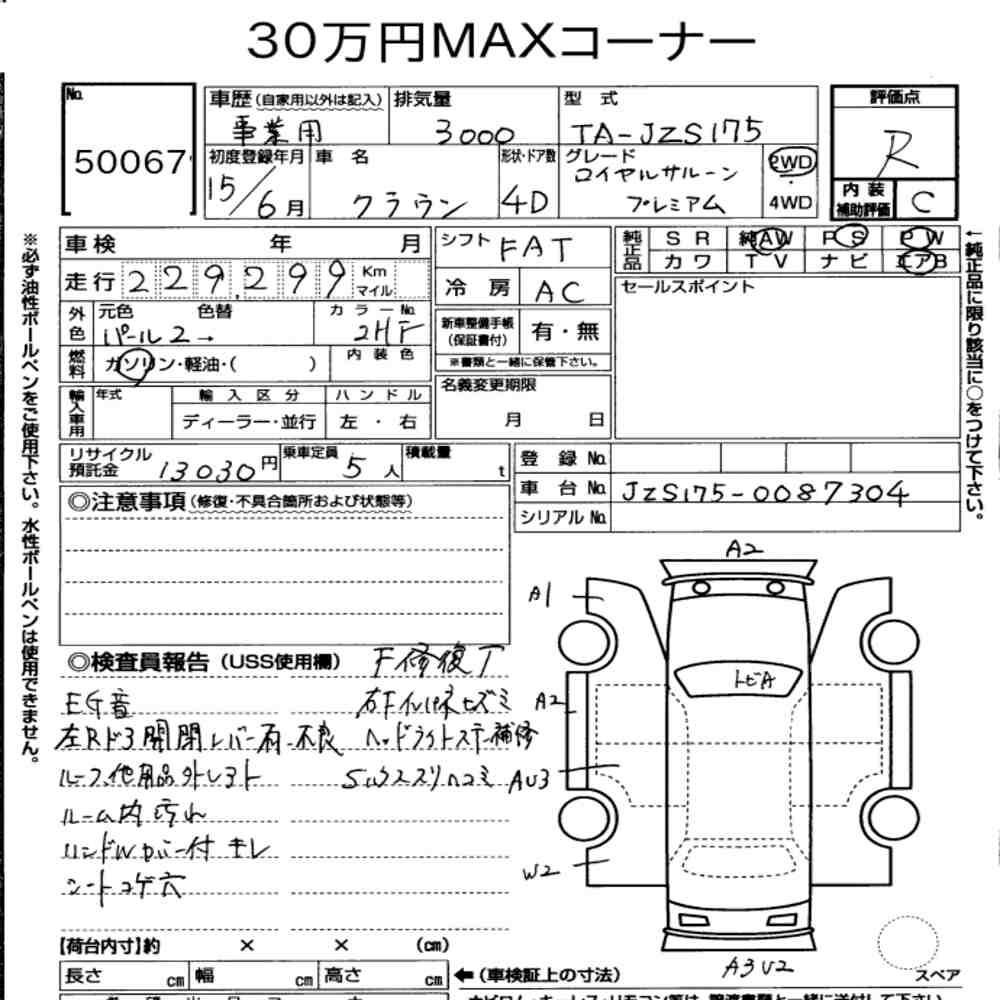 30万円MAXコーナー
No. 50067
車歴(自家用以外は記入) 事業用
排気量 3000
型式 TA-JZS175
評価点 R
初度登録年月 15/6月
車名 クラウン
形状・ドア数 4D
グレード ロイヤルサルーン プレミアム
2WD 4WD
内装補助評価 C
車検 年 月
走行 229,299 Km マイル
外色 元色 パール2→ 色替 カラーNo. 2HF
燃料 ガソリン・軽油・( ) 内装色
輸入車用 年式 輸入区分 ディーラー・並行 ハンドル 左・右
シフト FAT
冷房 AC
新車整備手帳(保証書付) 有・無
※書類と一緒に保管下さい。
名義変更期限 月 日
純正品 SR 純AW PS PW
カワ TV ナビ エアB
セールスポイント
←純正品に限り該当に○をつけて下さい。
※必ず油性ボールペンをご使用下さい。水性ボールペンは使用できません。
リサイクル預託金 13030円
乗車定員 5人
積載量 t
登録No.
車台No. JZS175-0087304
シリアルNo.
◎注意事項(修復・不具合箇所および状態等)
◎検査員報告(USS使用欄) F修復丁
EG音 右Fインパネヒズミ
左Rドア開閉レバー有 不良 ヘッドライトステー補修
ルーム内汚れ
ハンドルカバー付 キレ
シートコゲ穴
A2
A1
トビA
A2
AU3
W2
A3U2
スペア
【荷台内寸】約 × × (cm)
長さ cm 幅 cm 高さ cm
←(車検証上の寸法)